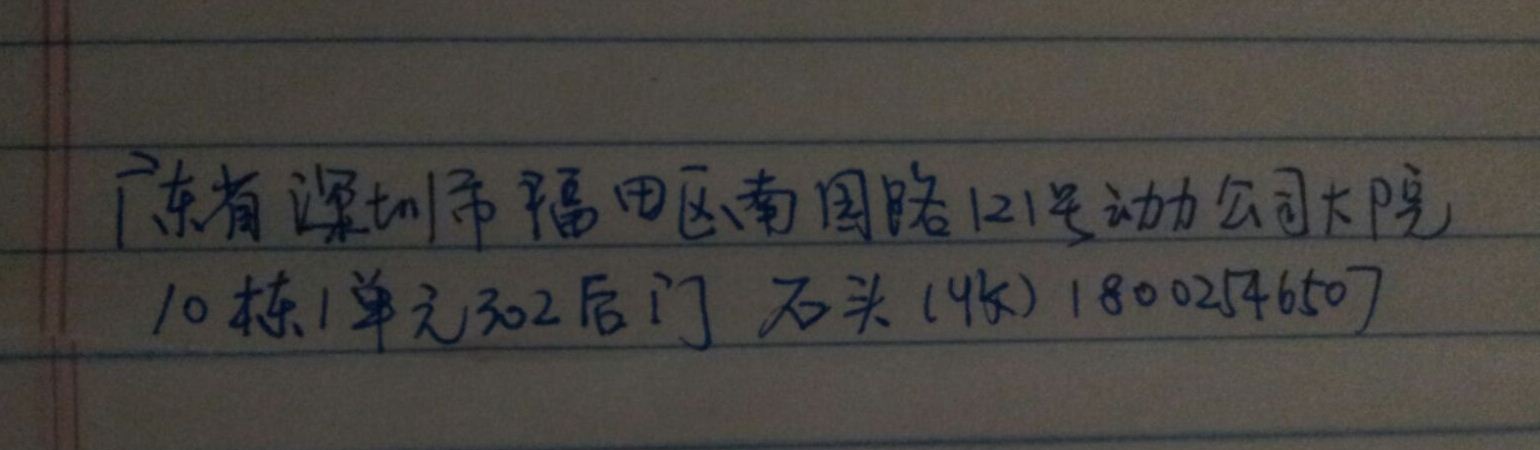 广东省深圳市福田区南园路121号动力公司大院
10栋1单元302后门 石头(收) 18002546507